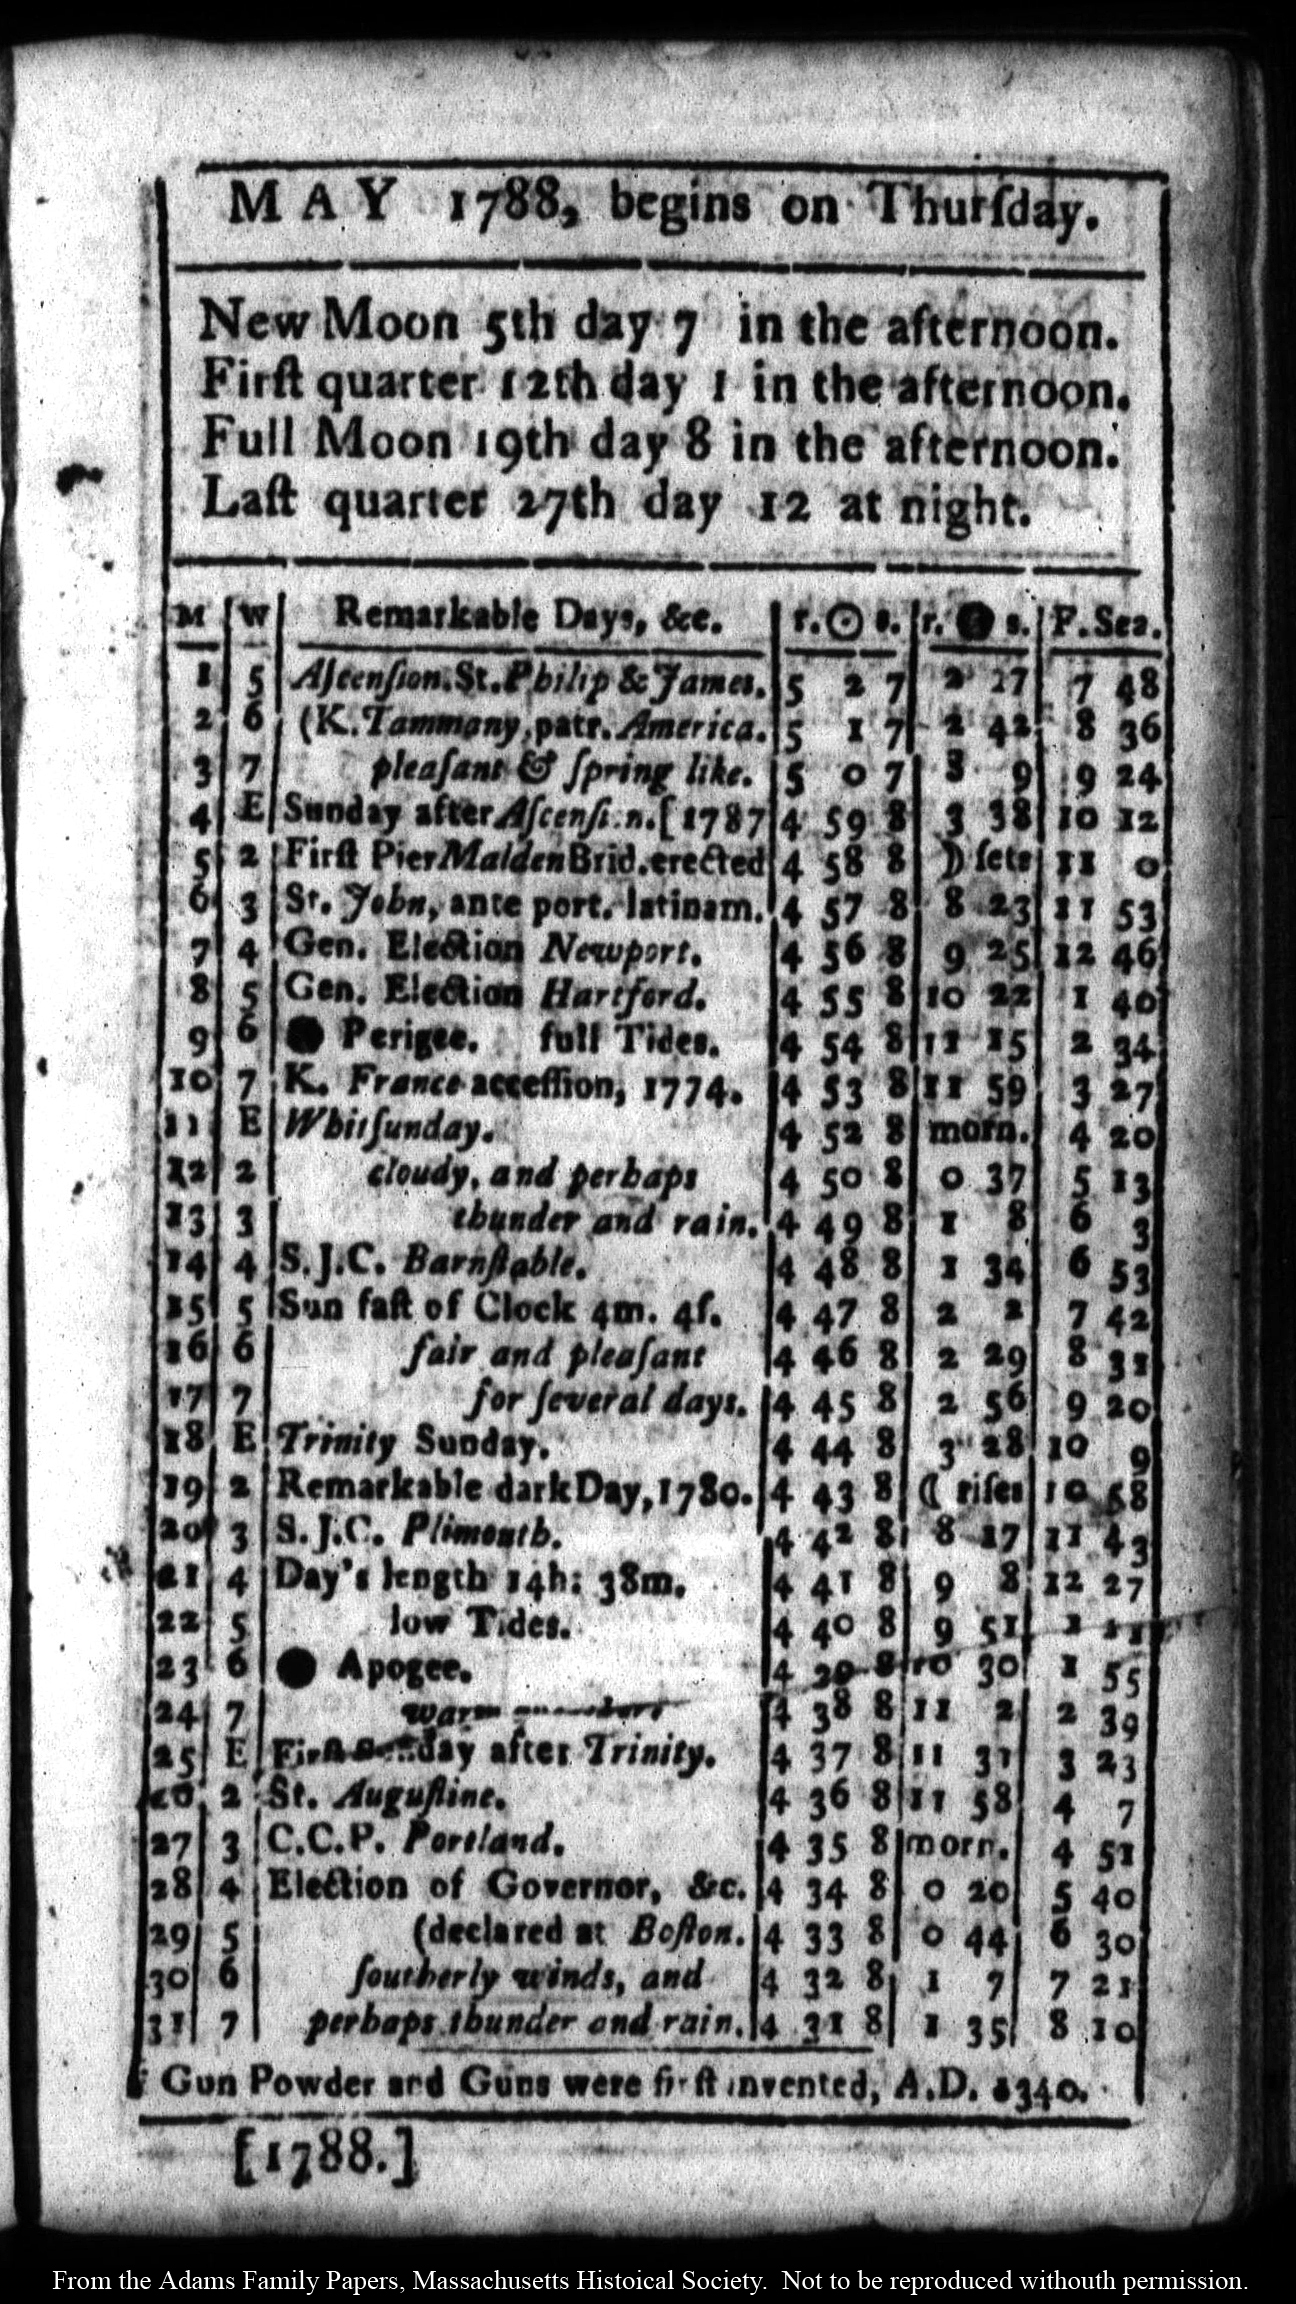 MAY 1788, begins on Thurſday.
New Moon 5th day 7 in the afternoon.
Firſt quarter 12th day 1 in the afternoon.
Full Moon 19th day 8 in the afternoon.
Laſt quarter 27th day 12 at night.
M W Remarkable Days, &c. r.☉s. r.●s. F.Sea.
1 5 Aſcenſion. St. Philip & James. 5 2 7 2 27 7 48
2 6 (K. Tammany, patr. America. 5 1 7 2 42 8 36
3 7 pleaſant & ſpring like. 5 0 7 3 9 9 24
4 E Sunday after Aſcenſi.n. [1787 4 59 8 3 38 10 12
5 2 Firſt Pier Malden Brid. erected 4 58 8 ☽ ſets 11 0
6 3 St. John, ante port. latinam. 4 57 8 8 23 11 53
7 4 Gen. Election Newport. 4 56 8 9 25 12 46
8 5 Gen. Election Hartford. 4 55 8 10 22 1 40
9 6 ● Perigee. full Tides. 4 54 8 11 15 2 34
10 7 K. France acceſſion, 1774. 4 53 8 11 59 3 27
11 E Whitſunday. 4 52 8 morn. 4 20
12 2 cloudy, and perhaps 4 50 8 0 37 5 13
13 3 thunder and rain. 4 49 8 1 8 6 3
14 4 S.J.C. Barnſtable. 4 48 8 1 34 6 53
15 5 Sun faſt of Clock 4m. 4ſ. 4 47 8 2 2 7 42
16 6 fair and pleaſant 4 46 8 2 29 8 31
17 7 for ſeveral days. 4 45 8 2 56 9 20
18 E Trinity Sunday. 4 44 8 3 28 10 9
19 2 Remarkable dark Day, 1780. 4 43 8 ☾ riſes 10 58
20 3 S.J.C. Plimouth. 4 42 8 8 17 11 43
21 4 Day's length 14h: 38m. 4 41 8 9 8 12 27
22 5 low Tides. 4 40 8 9 51 1 11
23 6 ● Apogee. 4 39 8 10 30 1 55
24 7 warm 4 38 8 11 2 2 39
25 E Firſt Sunday after Trinity. 4 37 8 11 31 3 23
26 2 St. Auguſtine. 4 36 8 11 58 4 7
27 3 C.C.P. Portland. 4 35 8 morn. 4 51
28 4 Election of Governor, &c. 4 34 8 0 20 5 40
29 5 (declared at Boſton. 4 33 8 0 44 6 30
30 6 ſoutherly winds, and 4 32 8 1 7 7 21
31 7 perhaps thunder and rain. 4 31 8 1 35 8 10
Gun Powder and Guns were firſt invented, A.D. 1340.
[1788.]
From the Adams Family Papers, Massachusetts Histoical Society. Not to be reproduced withouth permission.